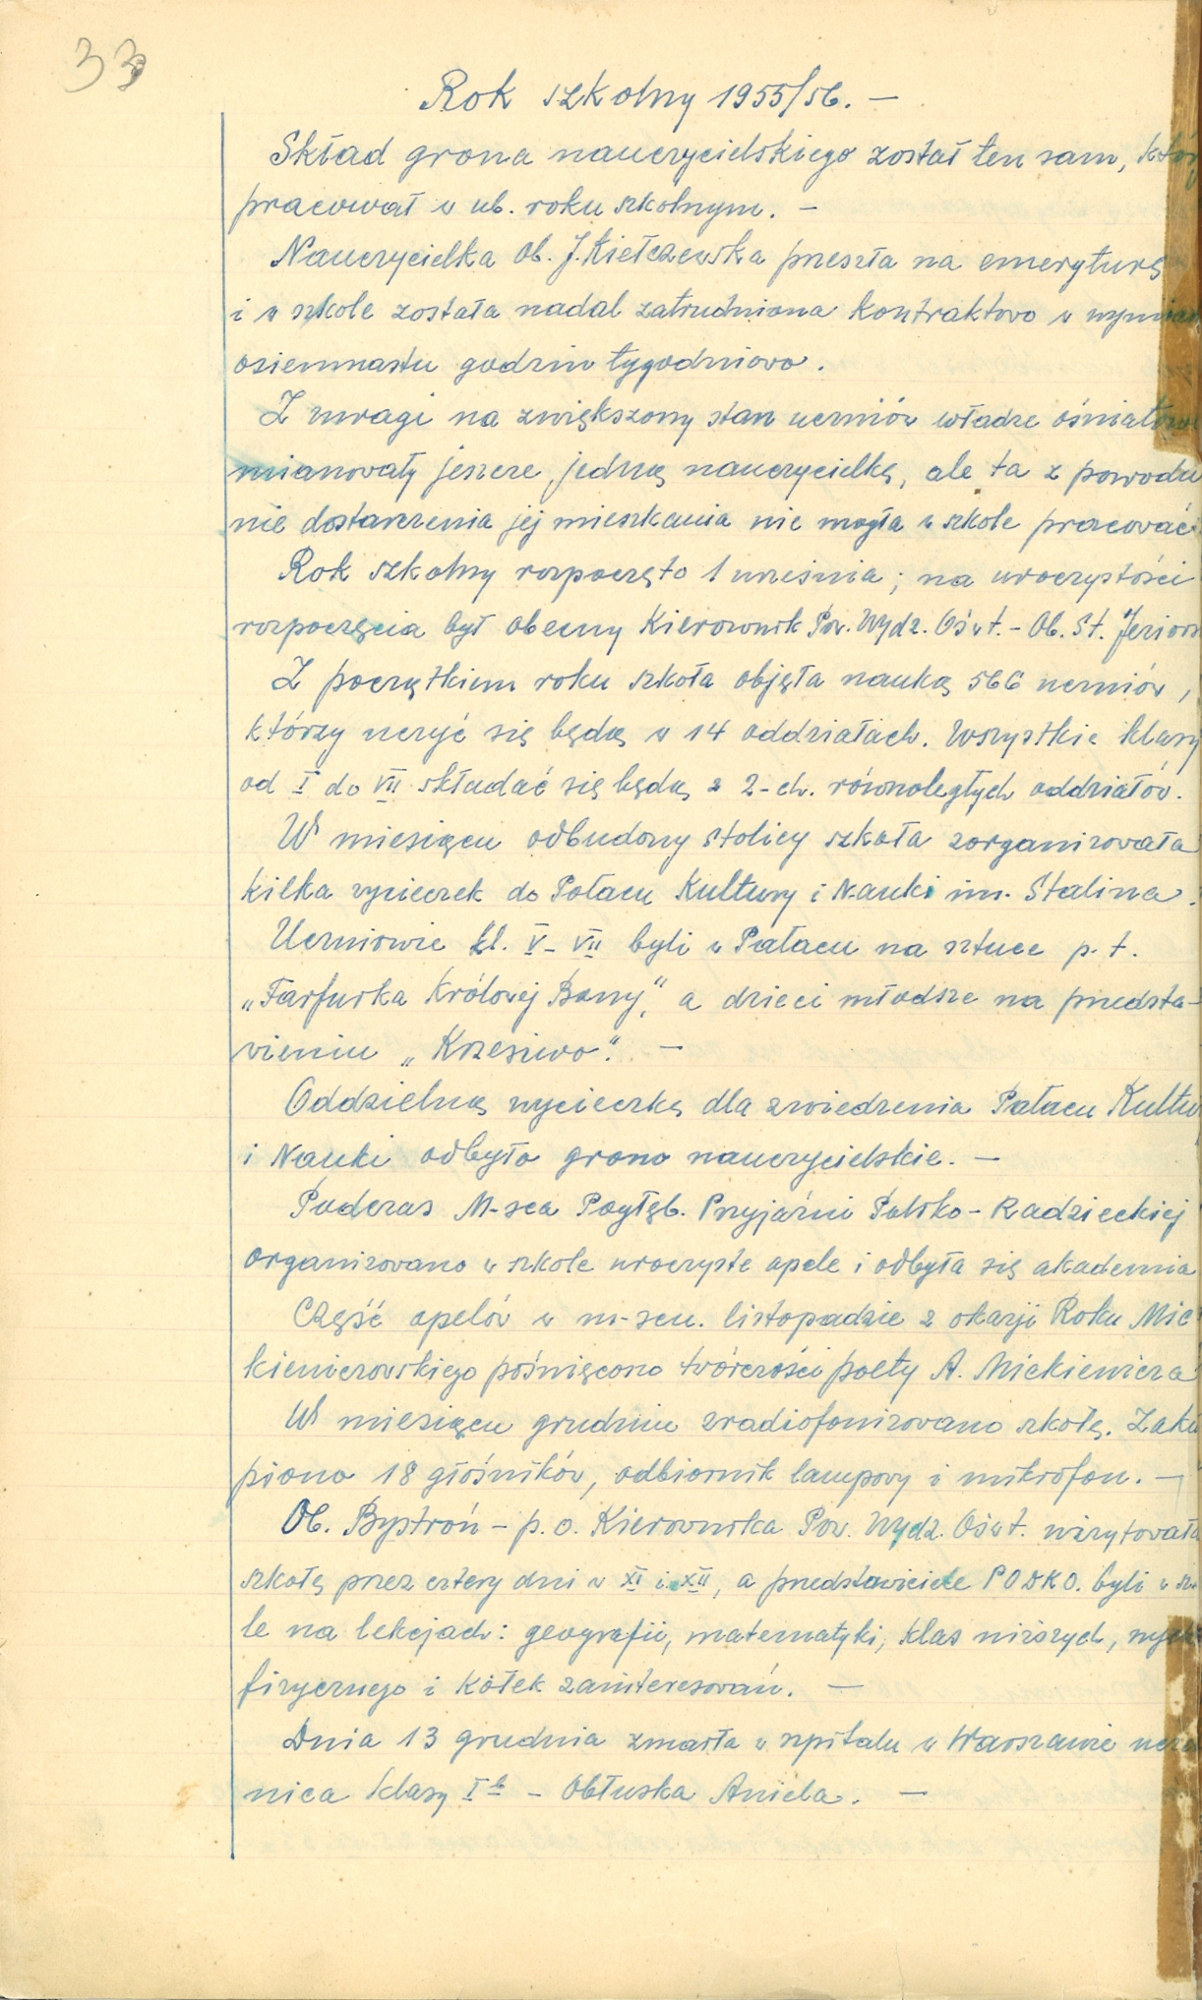 33
Rok szkolny 1955/56. —
Skład grona nauczycielskiego został ten sam,
pracował w ub. roku szkolnym. —
Nauczycielka Ob. J. Kiełczewska przeszła na emeryturę
i w szkole została nadal zatrudniona kontraktowo w
osiemnastu godzin tygodniowo.
Z uwagi na zwiększony stan uczniów władze
mianowały jeszcze jedną nauczycielkę, ale ta z powodu
nie dostarczenia jej mieszkania nie mogła w szkole pracować
Rok szkolny rozpoczęto 1 września; na uroczystości
rozpoczęcia był obecny Kierownik Pow. Wydz. Ośw t. - Ob. St.
Z początkiem roku szkoła objęła nauką 566 uczniów,
którzy uczyć się będą w 14 oddziałach. Wszystkie klasy
od I do VII składać się będą z 2-ch. równoległych oddziałów.
W miesiącu odbudowy stolicy szkoła zorganizowała
kilka wycieczek do Pałacu Kultury i Nauki im. Stalina.
Uczniowie kl. V - VII byli w Pałacu na sztuce p. t.
„Farfurka Królowej Bony", a dzieci młodsze na przedsta-
wieniu „Krzesiwo". —
Oddzielną wycieczkę dla zwiedzenia Pałacu
i Nauki odbyło grono nauczycielskie. —
Podczas M-sca Pogłęb. Przyjaźni Polsko - Radzieckiej
organizowano w szkole uroczyste apele i odbyła się akademia
Część apelów w m-scu. listopadzie z okazji Roku Mic
kiewiczowskiego poświęcono twórczości poety A. Mickiewicza
W miesiącu grudniu zradiofonizowano szkołę. Zaku
piono 18 głośników, odbiornik lampowy i mikrofon. —
Ob. Bystroń - p. o. Kierownika Pow. Wydz. Ośw t. wizytowała
szkołę przez cztery dni w XI i XII, a przedstawiciele PODKO. byli w
le na lekcjach: geografii, matematyki, klas niższych,
fizycznego i kółek zainteresowań. —
Dnia 13 grudnia zmarła w szpitalu w Warszawie
nica klasy I b - Obłuska Aniela. —